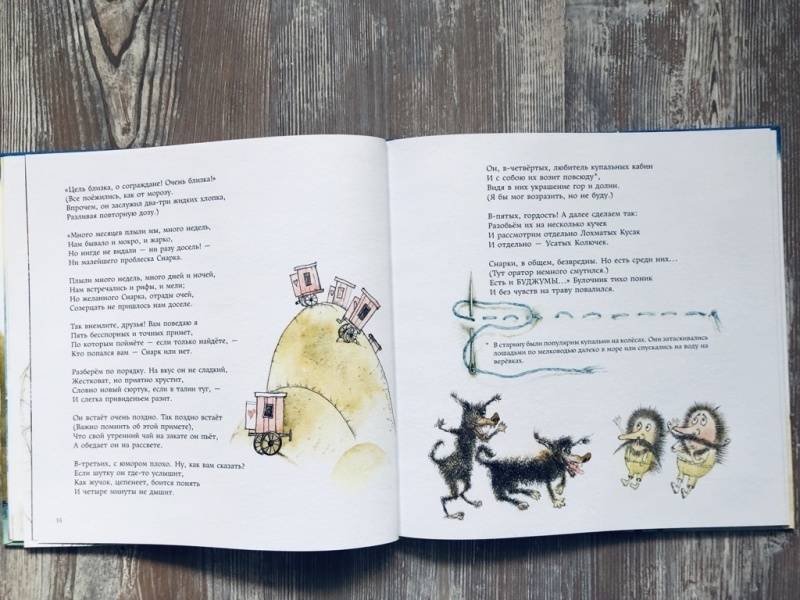 «Цель близка, о сограждане! Очень близка!»
(Все поёжились, как от морозу.
Впрочем, он заслужил два-три жидких хлопка,
Разливая повторную дозу.)
«Много месяцев плыли мы, много недель,
Нам бывало и мокро, и жарко,
Но нигде не видали — ни разу досель! —
Ни малейшего проблеска Снарка.
Плыли много недель, много дней и ночей,
Нам встречались и рифы, и мели;
Но желанного Снарка, отрады очей,
Созерцать не пришлось нам доселе.
Так внемлите, друзья! Вам поведаю я
Пять бесспорных и точных примет,
По которым поймёте — если только найдёте, —
Кто попался вам — Снарк или нет.
Разберём по порядку. На вкус он не сладкий,
Жестковат, но приятно хрустит,
Словно новый сюртук, если в талии туг, —
И слегка привиденьем разит.
Он встаёт очень поздно. Так поздно встаёт
(Важно помнить об этой примете),
Что свой утренний чай на закате он пьёт,
А обедает он на рассвете.
В-третьих, с юмором плохо. Ну, как вам сказать?
Если шутку он где-то услышит,
Как жучок, цепенеет, боится понять
И четыре минуты не дышит.
16
Он, в-четвёртых, любитель купальных кабин
И с собою их возит повсюду*,
Видя в них украшение гор и долин.
(Я бы мог возразить, но не буду.)
В-пятых, гордость! А далее сделаем так:
Разобьём их на несколько кучек
И рассмотрим отдельно Лохматых Кусак
И отдельно — Усатых Колючек.
Снарки, в общем, безвредны. Но есть среди них...
(Тут оратор немного смутился.)
Есть и БУДЖУМЫ...» Булочник тихо поник
И без чувств на траву повалился.
* В старину были популярны купальни на колёсах. Они затаскивались
лошадьми по мелководью далеко в море или спускались на воду на
верёвках.